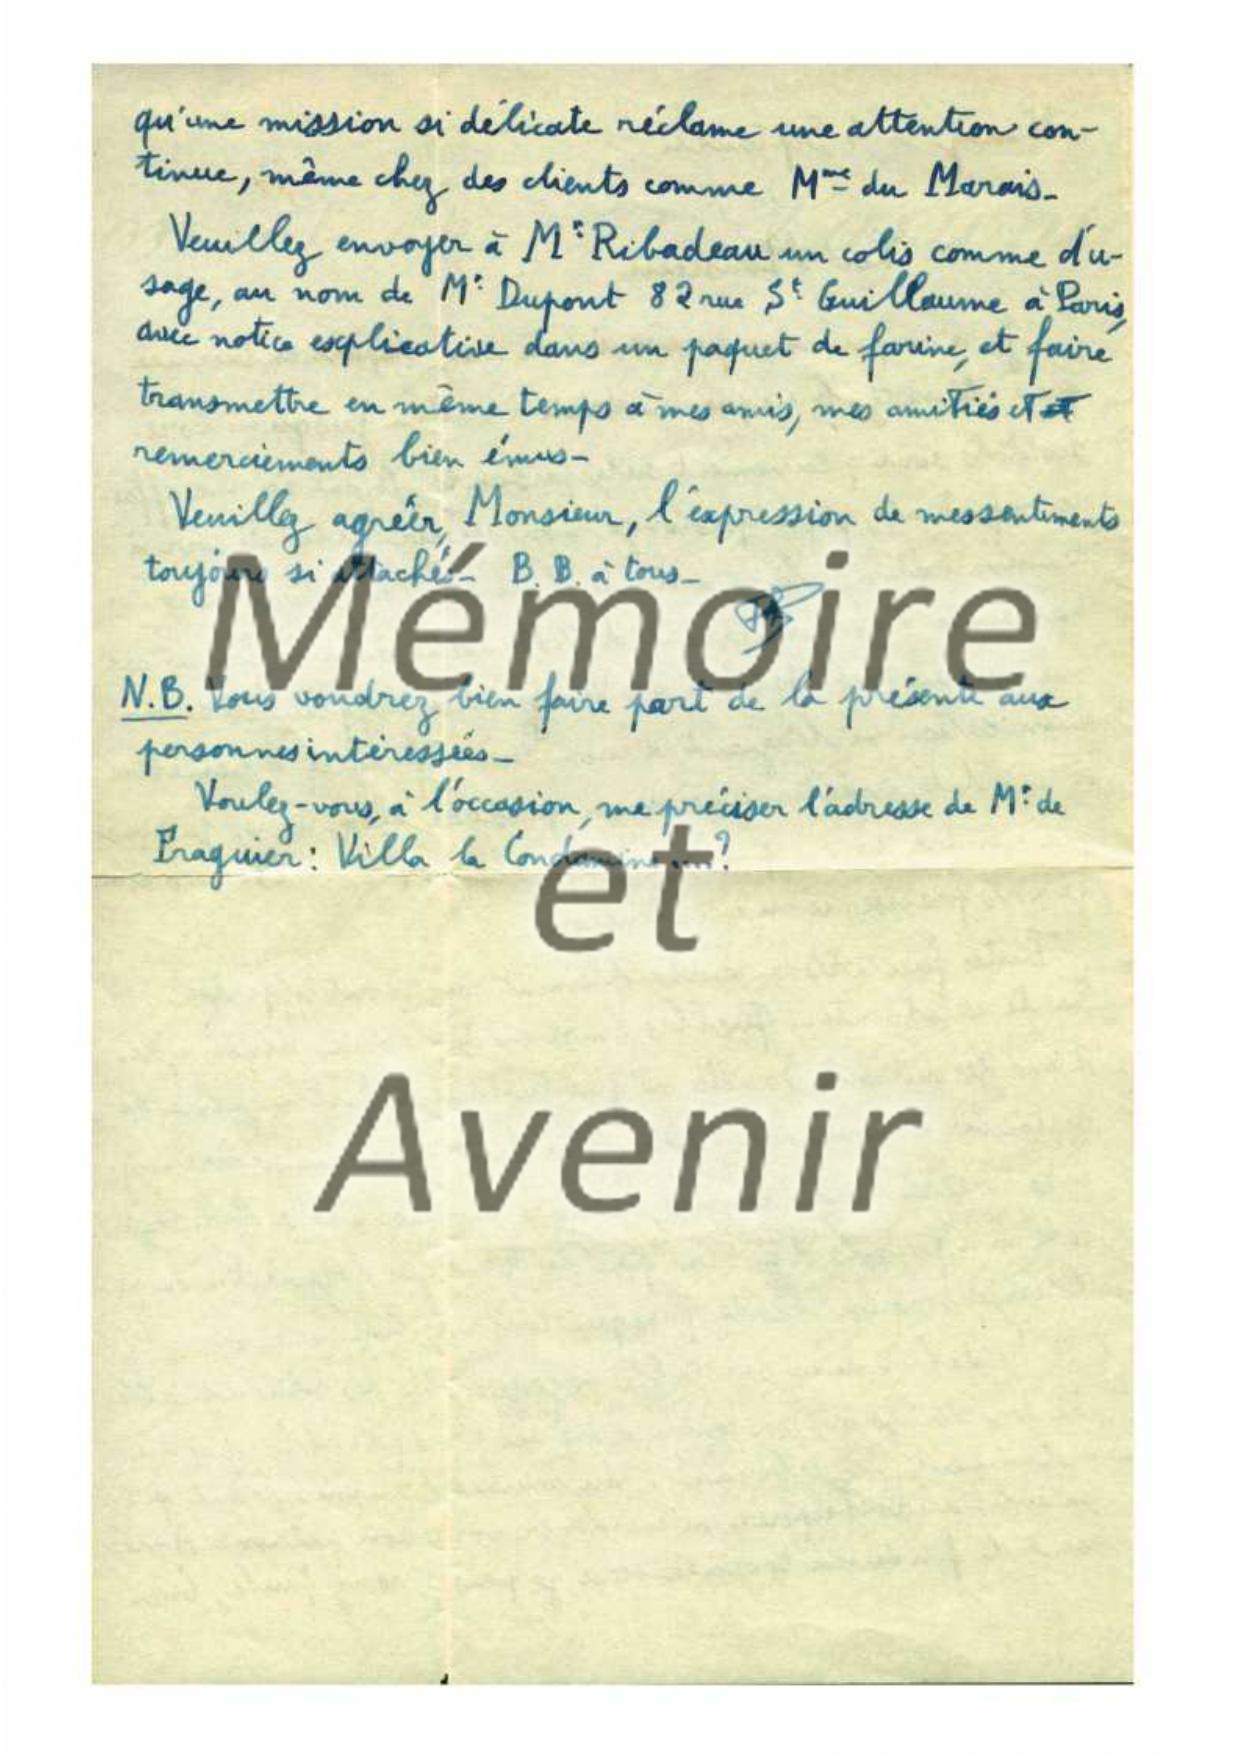 qu'une mission si délicate réclame une attention con-
tinue, même chez des clients comme Mme du Marais_
Veuillez envoyer à Mr Ribadeau un colis comme d'u-
sage, au nom de Mr Dupont 82 rue St Guillaume à Paris,
avec notice explicative dans un paquet de farine, et faire
transmettre en même temps à mes amis, mes amitiés et et
remerciements bien émus_
Veuillez agréer, Monsieur, l'expression de mes sentiments
toujours si attachés_ B. B. à tous_
Mémoire
N.B. Vous voudrez bien faire part de la présente aux
personnes intéressées_
Voulez-vous, à l'occasion, me préciser l'adresse de Mr de
Fraguier: Villa la Condamine ...?
et
Avenir